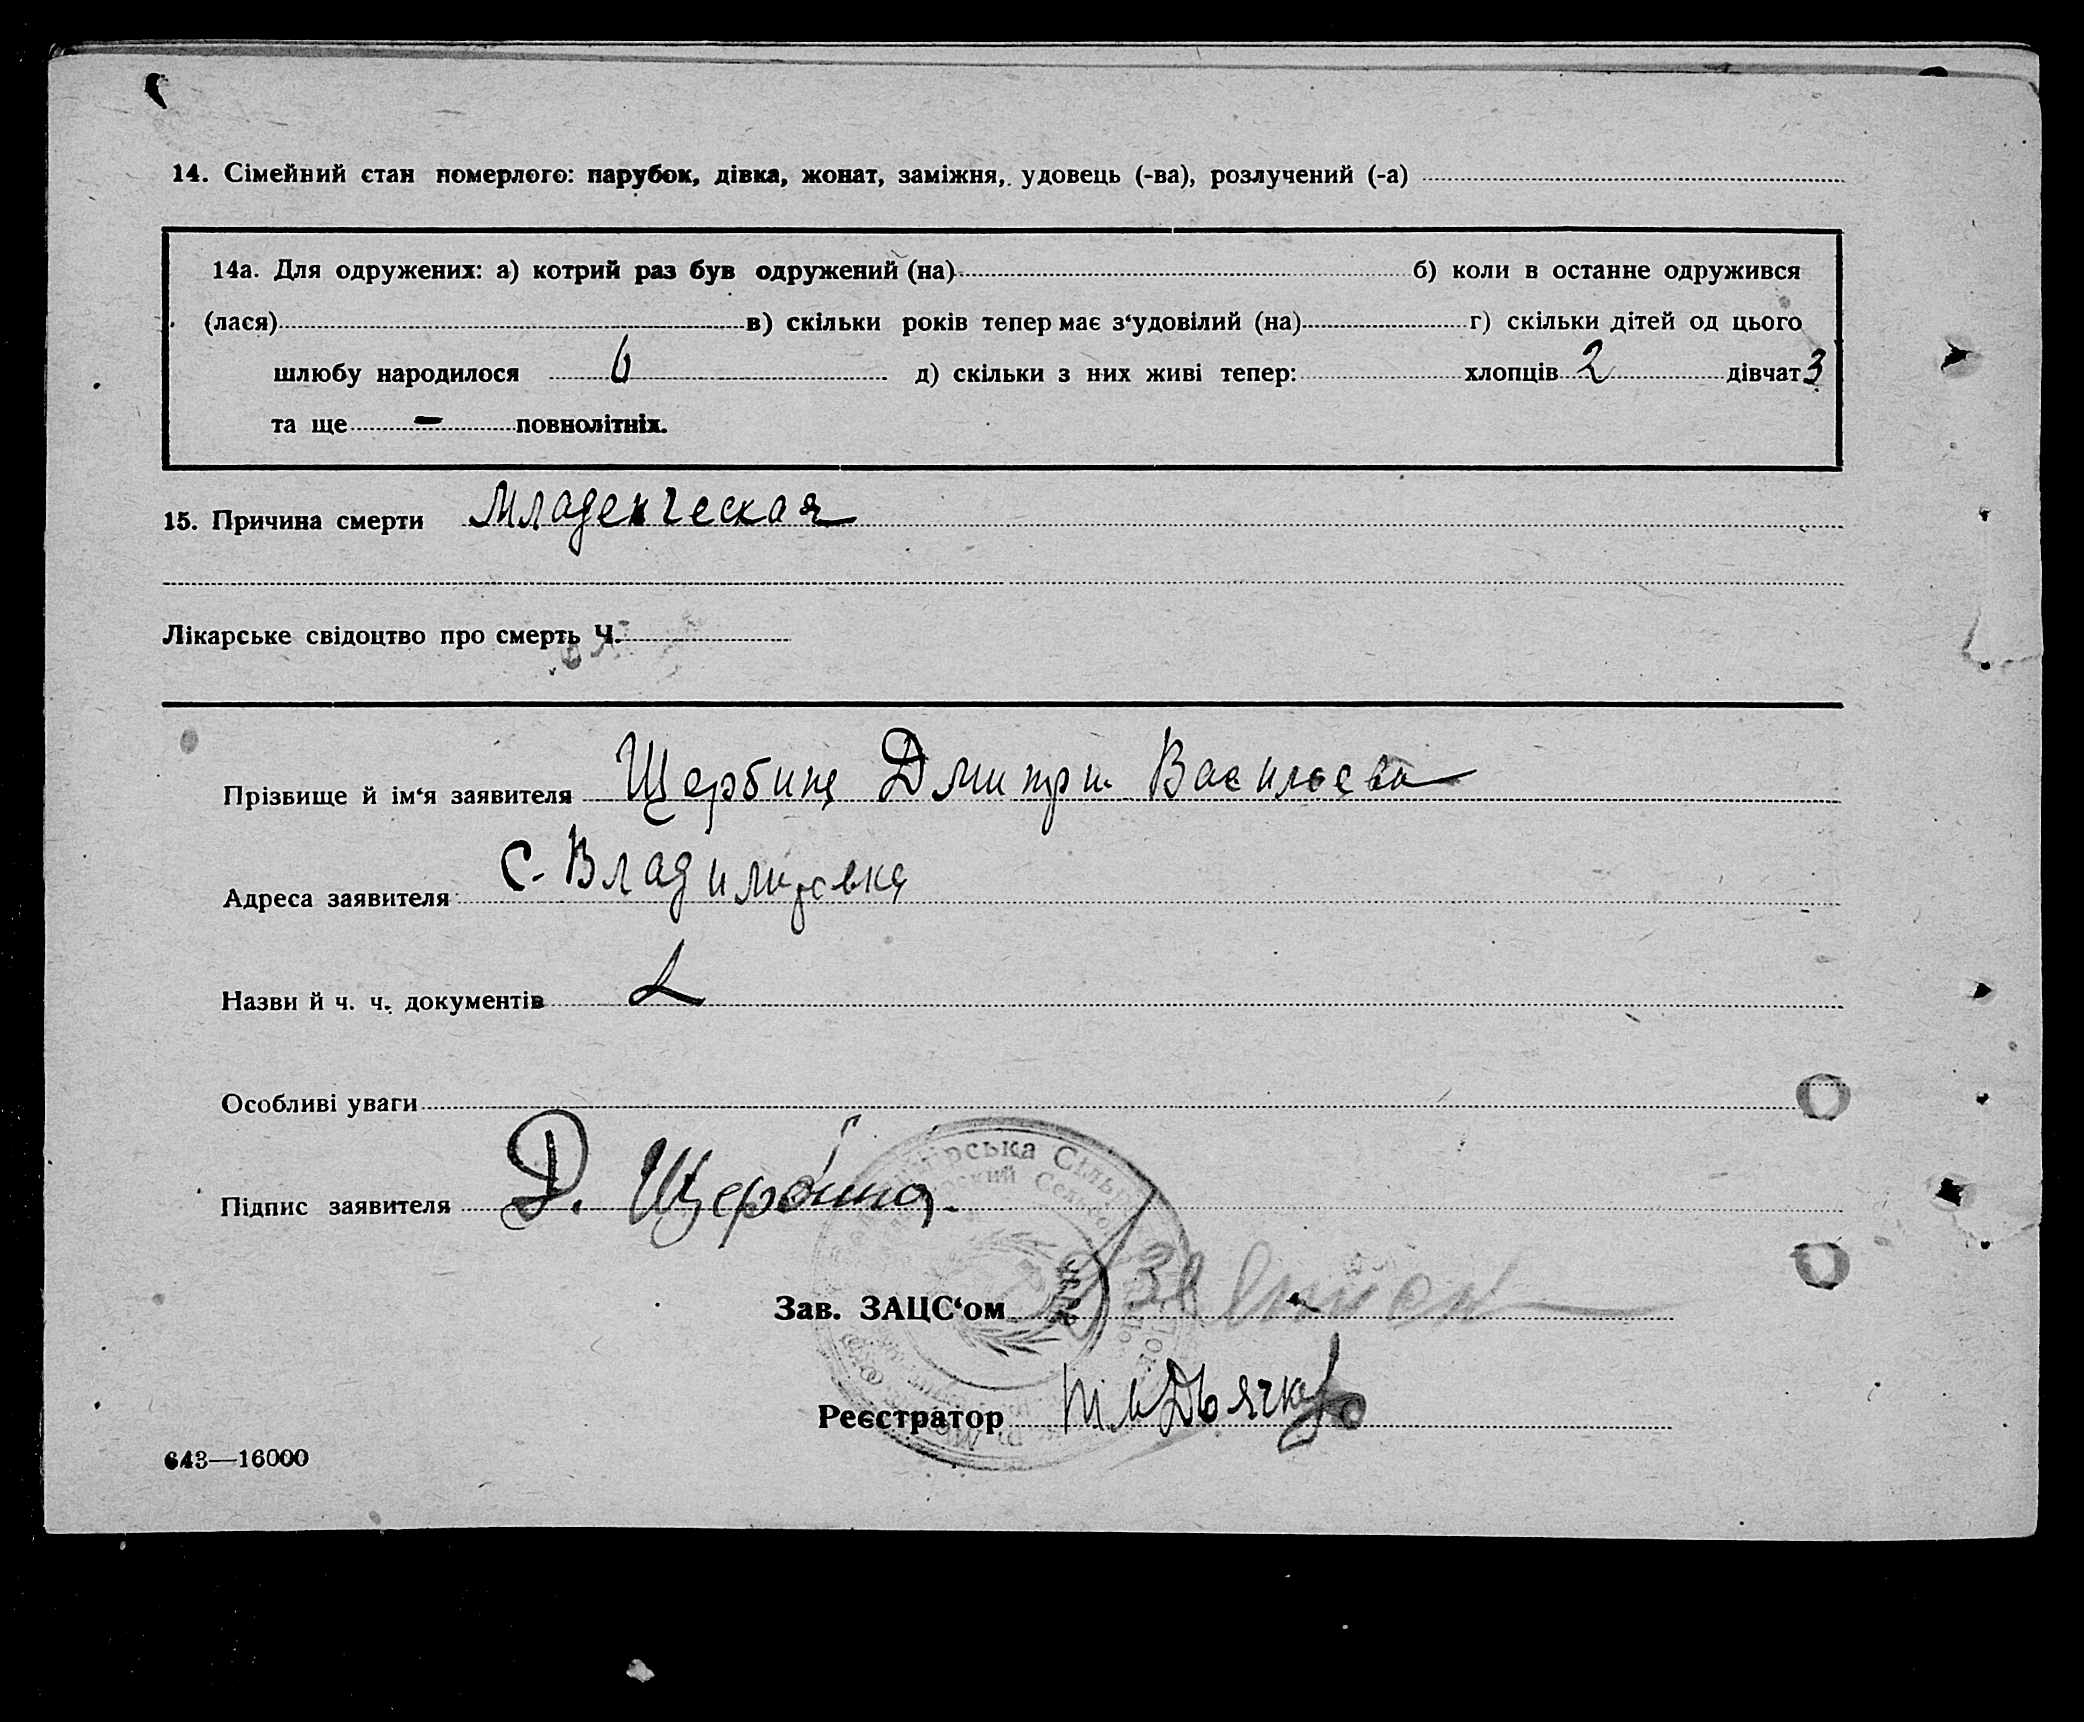 14. Сімейний стан померлого: парубок, дівка, жонат, заміжня, удовець (-ва), розлучений (-а)
14а. Для одружених: а) котрий раз був одружений (на) б) коли в останнє одружився
(лася) в) скільки років тепер має з‘удовілий (на) г) скільки дітей од цього
шлюбу народилося 6 д) скільки з них живі тепер: хлопців 2 дівчат 3
та ще – повнолітніх.
15. Причина смерти Младенческая
Лікарське свідоцтво про смерть Ч.
Прізвище й ім‘я заявителя Щербина Дмитри Васильева
Адреса заявителя с. Владимировка
Назви й ч. ч. документів
Особливі уваги
Підпис заявителя Д. Щербина
Зав. ЗАЦС‘ом
Реєстратор
643—16000